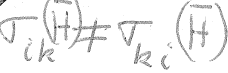 σ_{ik}(H̄) ≠ σ_{ki}(H̄)